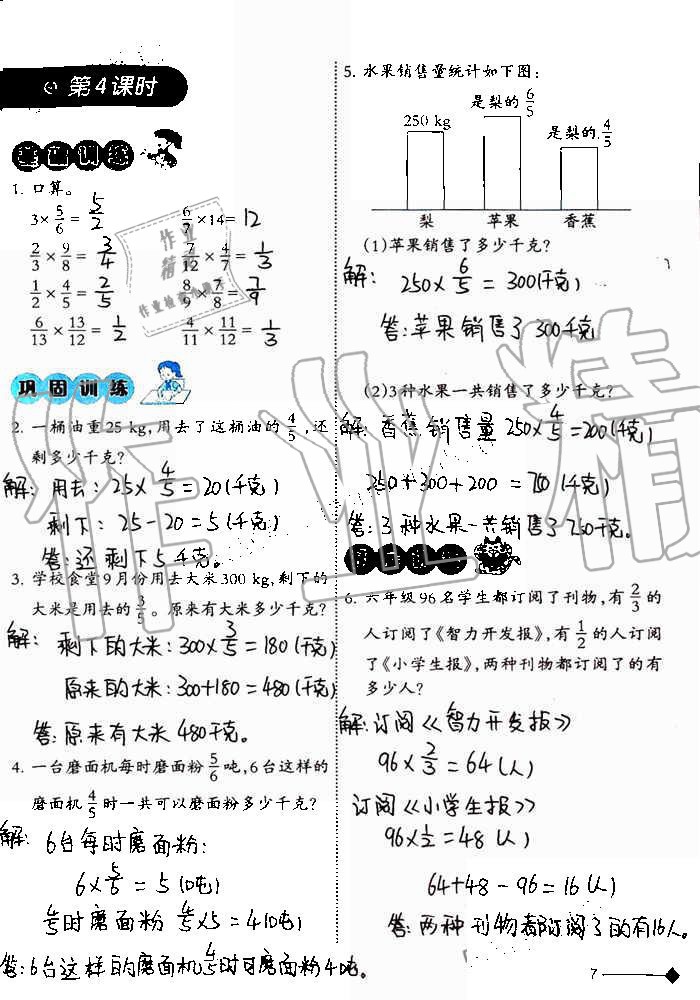 第4课时
基础训练
1. 口算。
3×5/6= 5/2  6/7×14= 12
2/3×9/8= 3/4  7/12×4/7= 1/3
1/2×4/5= 2/5  8/9×7/8= 7/9
6/13×13/12= 1/2  4/11×11/12= 1/3
巩固训练
2. 一桶油重25 kg,用去了这桶油的4/5,还
剩多少千克?
解: 用去: 25×4/5=20(千克)
剩下: 25-20=5(千克)
答:还剩下5千克。
3. 学校食堂9月份用去大米300 kg,剩下的
大米是用去的3/5。原来有大米多少千克?
解: 剩下的大米:300×3/5=180(千克)
原来的大米:300+180=480(千克)
答:原来有大米480千克。
4. 一台磨面机每时磨面粉5/6吨,6台这样的
磨面机4/5时一共可以磨面粉多少千克?
解: 6台每时磨面粉:
6×5/6=5(吨)
4/5时磨面粉 4/5×5=4(吨)
答:6台这样的磨面机4/5时可磨面粉4吨。
5. 水果销售量统计如下图:
250 kg 是梨的6/5 是梨的4/5
梨 苹果 香蕉
(1)苹果销售了多少千克?
解: 250×6/5=300(千克)
答:苹果销售了300千克
(2)3种水果一共销售了多少千克?
解:香蕉销售量250×4/5=200(千克)
250+300+200=750(千克)
答:3种水果一共销售了750千克。
6. 六年级96名学生都订阅了刊物,有2/3的
人订阅了《智力开发报》,有1/2的人订阅
了《小学生报》,两种刊物都订阅了的有
多少人?
解:订阅《智力开发报》
96×2/3=64(人)
订阅《小学生报》
96×1/2=48(人)
64+48-96=16(人)
答:两种刊物都订阅了的有16人。
7
作业精
作业帮